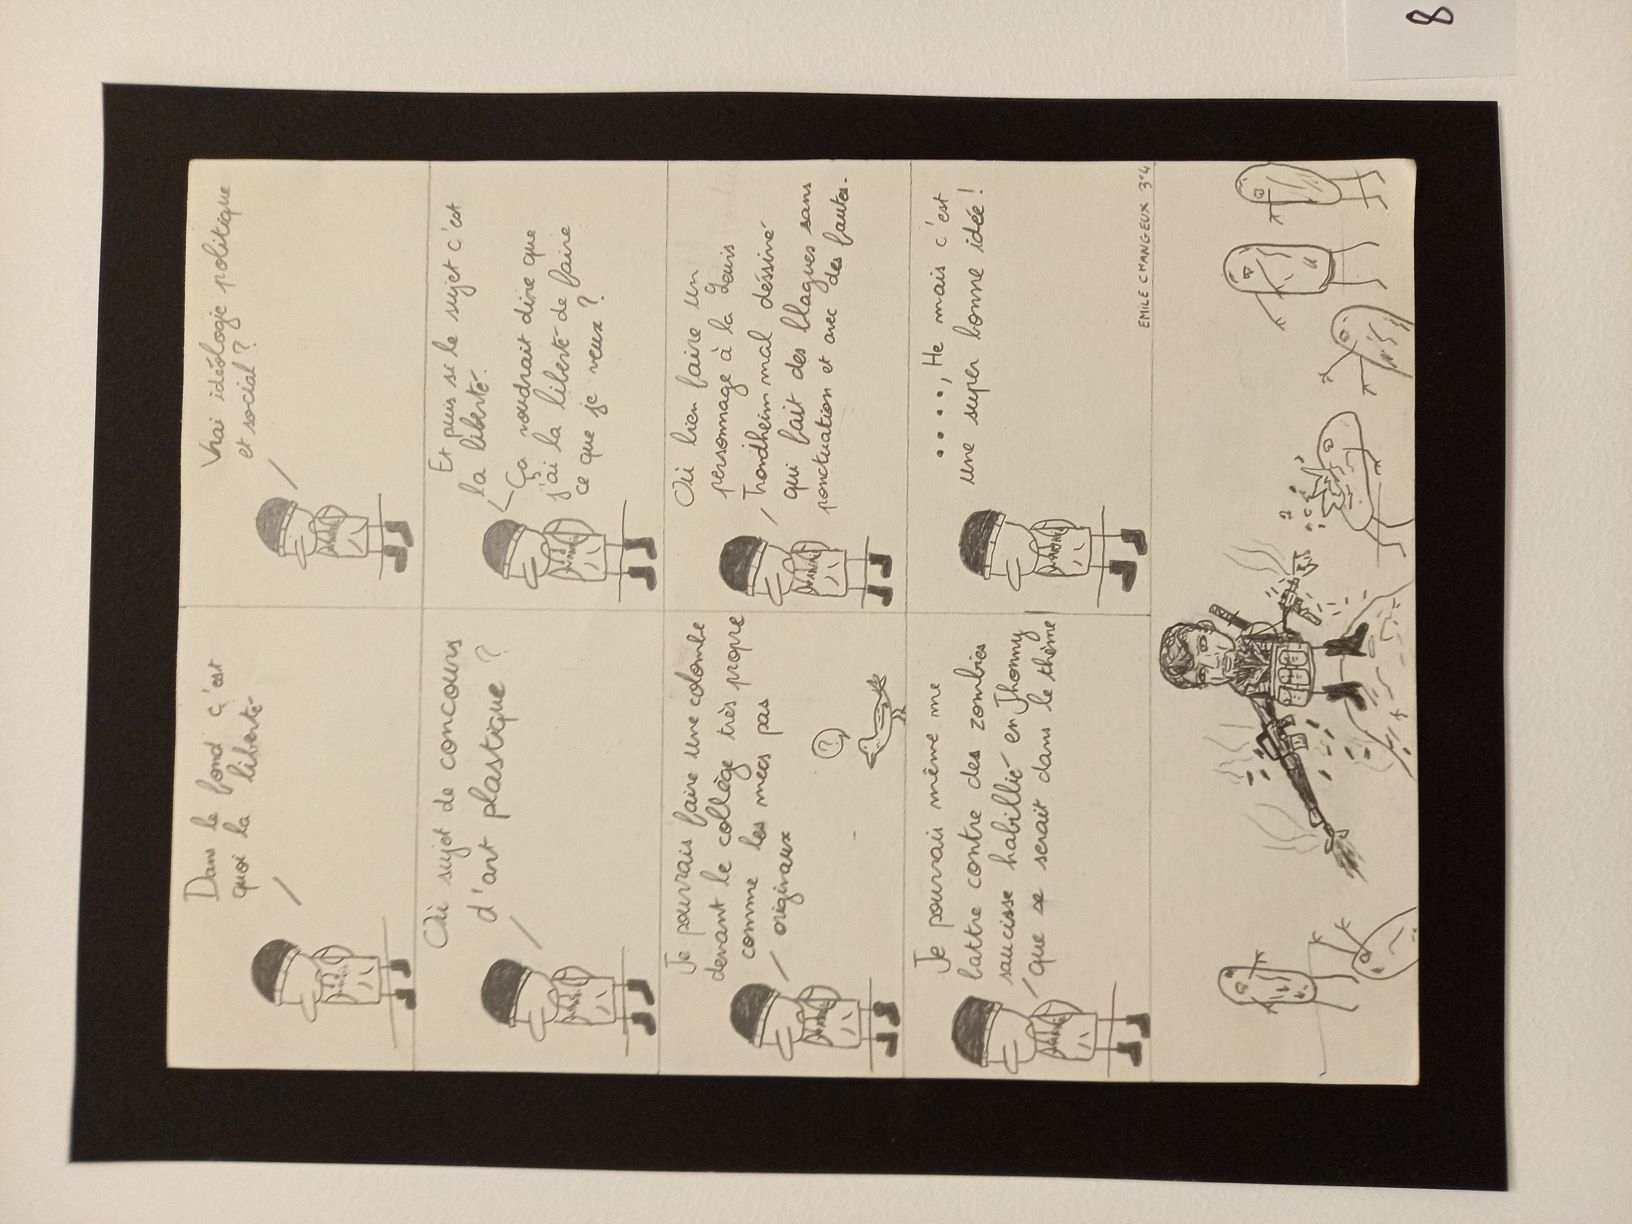 8
Dans le fond c'est
quoi la liberté
Vrai idéologie politique
et social ?
Où sujet de concours
d'art plastique ?
Et puis si le sujet c'est
la liberté.
Ça voudrait dire que
j'ai la liberté de faire
ce que je veux ?
Je pourrais faire une colombe
devant le collège très propre
comme les mecs pas
originaux
?
Où bien faire un
personnage à la Louis
Trondheim mal déssiné
qui fait des blagues sans
ponctuation et avec des fautes.
Je pourrais même me
battre contre des zombies
saucisse habillé en Jhonny
que se serait dans le thème
....., He mais c'est
une super bonne idée !
EMILE CHANGEUX 3°4